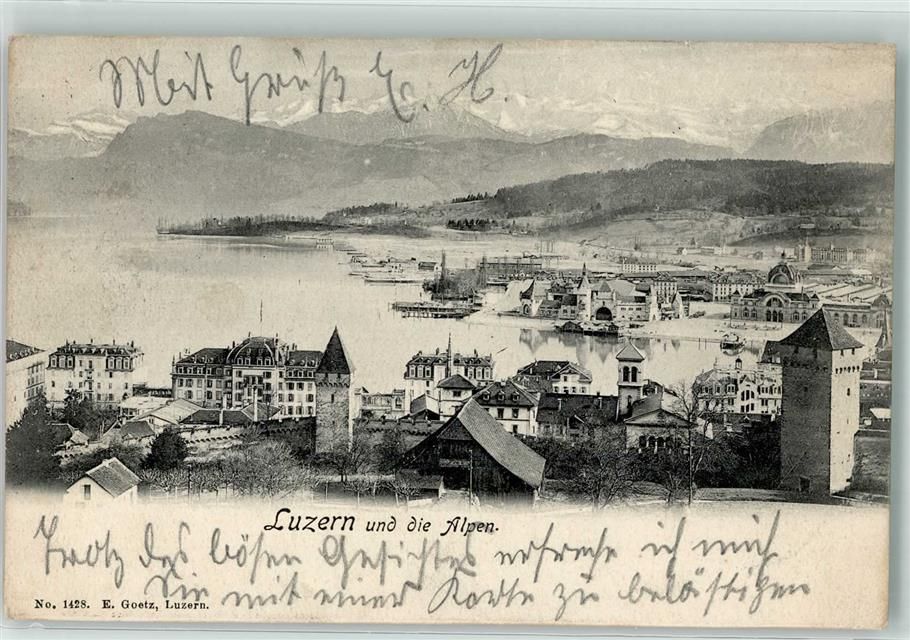 Mit Gruß E. H.
Luzern und die Alpen.
Trotz des bösen Gesichtes erfreche ich mich
Sie mit einer Karte zu belästigen
No. 1428. E. Goetz, Luzern.